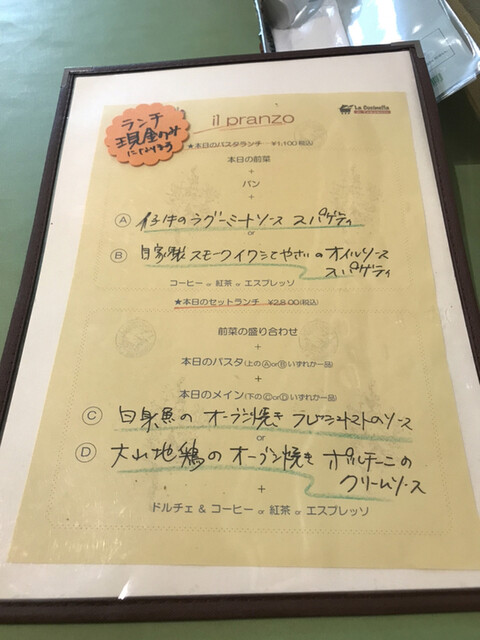 il pranzo
La Cucinetta
ランチ
現金のみ
になります
★本日のパスタランチ ¥1,100(税込)
本日の前菜
+
パン
+
Ⓐ 仔牛のラグーミートソース スパゲティ
or
Ⓑ 自家製スモークイワシとやさいのオイルソース
スパゲティ
コーヒー or 紅茶 or エスプレッソ
★本日のセットランチ ¥2,800(税込)
前菜の盛り合わせ
+
本日のパスタ(上のⒶorⒷいずれか一品)
+
本日のメイン(下のⒸorⒹいずれか一品)
Ⓒ 白身魚のオーブン焼き フレッシュトマトのソース
or
Ⓓ 大山地鶏のオーブン焼き ポルチーニの
クリームソース
+
ドルチェ & コーヒー or 紅茶 or エスプレッソ